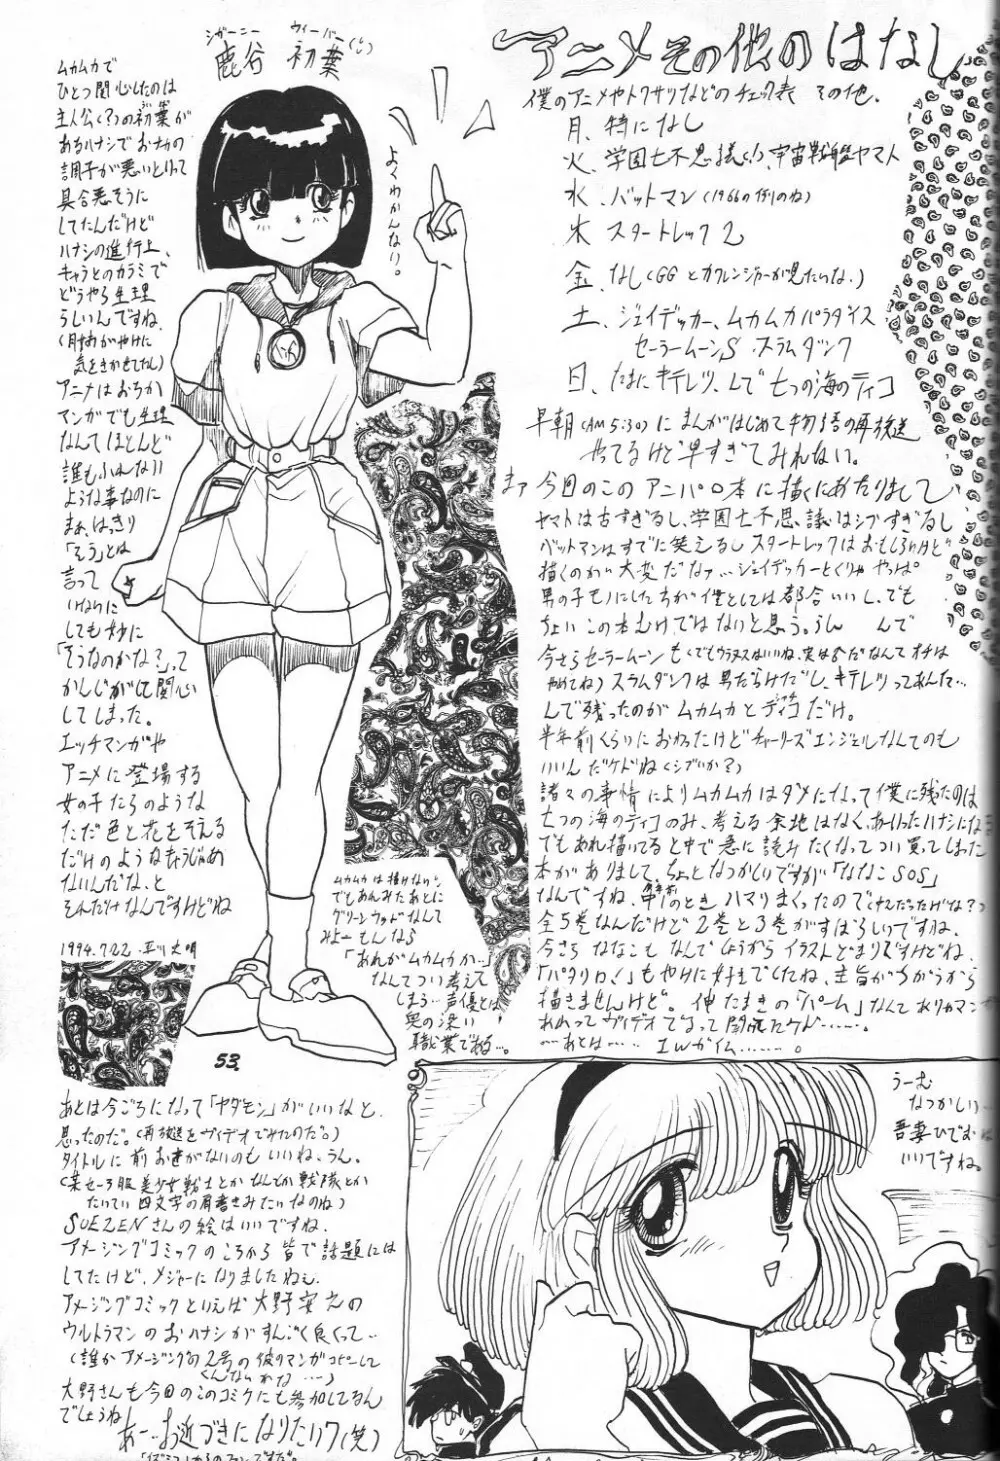 アニメその他のはなし
僕のアニメやトクサツなどのチェック表 その他、
月、特になし
火、学園七不思議(!)、宇宙戦艦ヤマト
水、バットマン(1966の作りのね)
木 スタートレック2
金、なし(GGとカクレンジャーが見たいな。)
土、ジェイデッカー、ムカムカパラダイス
セーラームーンS スラムダンク
日、たまにキテレツ、んで七つの海のティコ
早朝(AM5:30)にまんがはじめて物語の再放送
やってるけど早すぎてみれない。
まァ今回のこのアニパロ本に描くにあたりまして
ヤマトは古すぎるし、学園七不思議はシブすぎるし
バットマンはすでに笑えるしスタートレックはおもしろいけど
描くのが大変だなァ…ジェイデッカーとくりゃやっぱ
男の子モノにしたら 僕としては都合いいし、でも
ちょいこの本むけではないと思う。うん んで
今さらセーラームーン
やめてね)スラムダンクは男だらけだし、キテレツってあんた…
んで残ったのがムカムカとティコだけ。
半年前くらいにおわったけどチャーリーズエンジェルなんてのも
いいんだケドね(シブいか?)
諸々の事情によりムカムカはダメになって僕に残ったのは
七つの海のティコのみ、考える余地はなく、あーいったハナシにな
でもあれ描いてると中で急に読みたくなってつい買ってしまった
本がありまして、ちょっとなつかしいですが「ななこSOS」
なんですね、中1のときハマりまくったので
全5巻なんだけど2巻と3巻がすばらしいですね、
今さらななこもなんでしょうからイラストどまりですけどね、
「パタリロ!」もやけに好きでしたね、主旨がちがうから
描きませんけど。伸たまきの「パーム」なんて
シガーニー ウィーバー
鹿谷 初葉
よくわかんない。
ムカムカで
ひとつ関心したのは
主人公(?)の初葉が
あるハナシでおナカの
調子が悪いといって
具合悪そうに
してたんだけど
ハナシの進行上、
キャラとのカラミで
どうやら生理
らしいんですね、
気をきかせてたし)
アニメはおろか
マンガでも生理
なんてほとんど
誰もふれない
ような事なのに
まぁ、はっきり
「そう」とは
言って
いないに
しても妙に
「そうなのかな?」って
かんじがして関心
してしまった。
エッチマンガや
アニメに登場する
女の子たちのような
ただ色と花をそえる
だけのようなもんじゃあ
ないんだな、と
それだけなんですけどね
1994.7.22.
ムカムカは描けない。
でもあんみたあとに
グリーンウッドなんて
みよーもんなら
「あれがムカムカか…」
なんてつい考えて
しまう…声優とは
奥の深い
職業である…。
53.
あとは今ごろになって「ヤダモン」がいいなと
思ったのだ。(再放送をヴィデオでみたのだ。)
タイトルに前おきがないのもいいね、うん。
(某セーラー服美少女戦士とかなんとか戦隊とか
たいてい四文字の肩書きみたいなのね)
SUEZENさんの絵はいいですね、
アメージングコミックのころから皆で話題には
してたけど、メジャーになりましたねぇ
アメージングコミックといえば大野安之の
ウルトラマンのおハナシがすんごく良くって…
(誰かアメージングの2号の彼のマンガコピーして
くんないかな…)
大野さんも今回のこのコミケにも参加してるん
でしょうね
あー…お近づきになりたい?(笑)
うーむ
なつかしい…
吾妻ひでおは
いいですね。